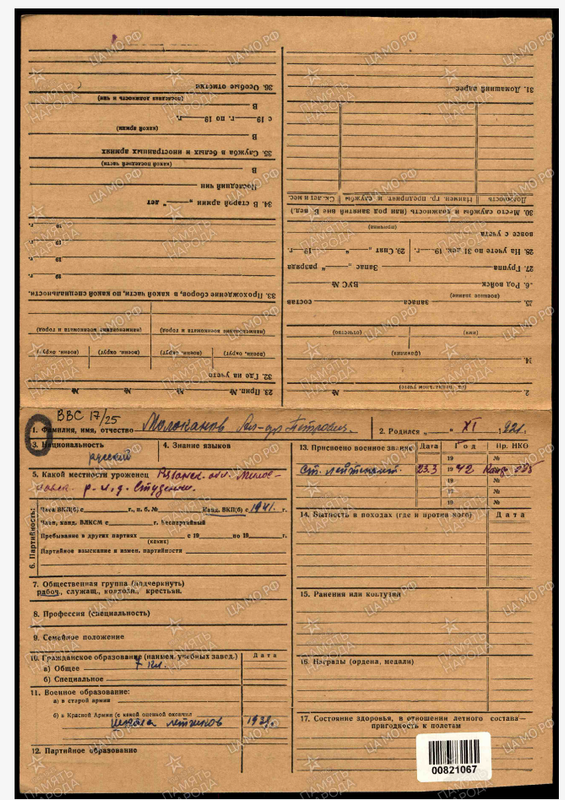 36. Особые отметки
(последняя должность и чин)
В
с 19 г. по 19 г.
(какой армии)
В
35. Служба в белых и иностранных армиях
(какой последней части)
В
Последний чин
34. В старой армии „ “ лет
19 г.
19 г.
19 г.
33. Прохождение сборов, в какой части, по какой специальности.
(наименование военкомата и город) (наименование военкомата и город)
(воен. округ) (воен. округ) (воен. округ) (воен. округ)
32. Где на учете
23. Прип. № № № №
31. Домашний адрес
Должность Наимен. гр. предприят. и службы Ск. лет и мес.
30. Место службы и должность (или род занятий вне В. вед.)
(причина)
вовсе с учета
28. На учете по 31 дек. 19 г. 29. Снят „ “ 19 г.
27. Группа Запас „ “ разряда
26. Род войск ВУС №
(военное звание)
25. запаса состав
(имя) (отчество)
(фамилия)
24.
ВВС 17/25
1. Фамилия, имя, отчество Молоканов Петрович. 2. Родился „ “ XI 1921.
3. Национальность русский
4. Знание языков
5. Какой местности уроженец Рязанск. обл. Милос-
р-н, д.
6. Партийность:
Член ВКП(б) с г., п. б. № Канд. ВКП(б) с 1941 г.
Член, канд. ВЛКСМ с г. Беспартийный
Пребывание в других партиях с 19 по 19 г.
(какие)
Партийное взыскание и измен. партийности
7. Общественная группа (подчеркнуть)
рабоч., служащ., колхозн., крестьян.
8. Профессия (специальность)
9. Семейное положение
10. Гражданское образование (наимен. учебных завед.) Дата
а) Общее 7 кл.
б) Специальное
11. Военное образование:
а) в старой армии
б) в Красной Армии (с какой оценкой окончил
школа летчиков 1939г.
12. Партийное образование
13. Присвоено военное звание Дата Год Пр. НКО
Ст. лейтенант 23.3 1942
19
19
19
14. Бытность в походах (где и против кого) Дата
15. Ранения или контузии
16. Награды (ордена, медали)
17. Состояние здоровья, в отношении летного состава—
пригодность к полетам
00821067
ПАМЯТЬ НАРОДА
ЦАМО.РФ